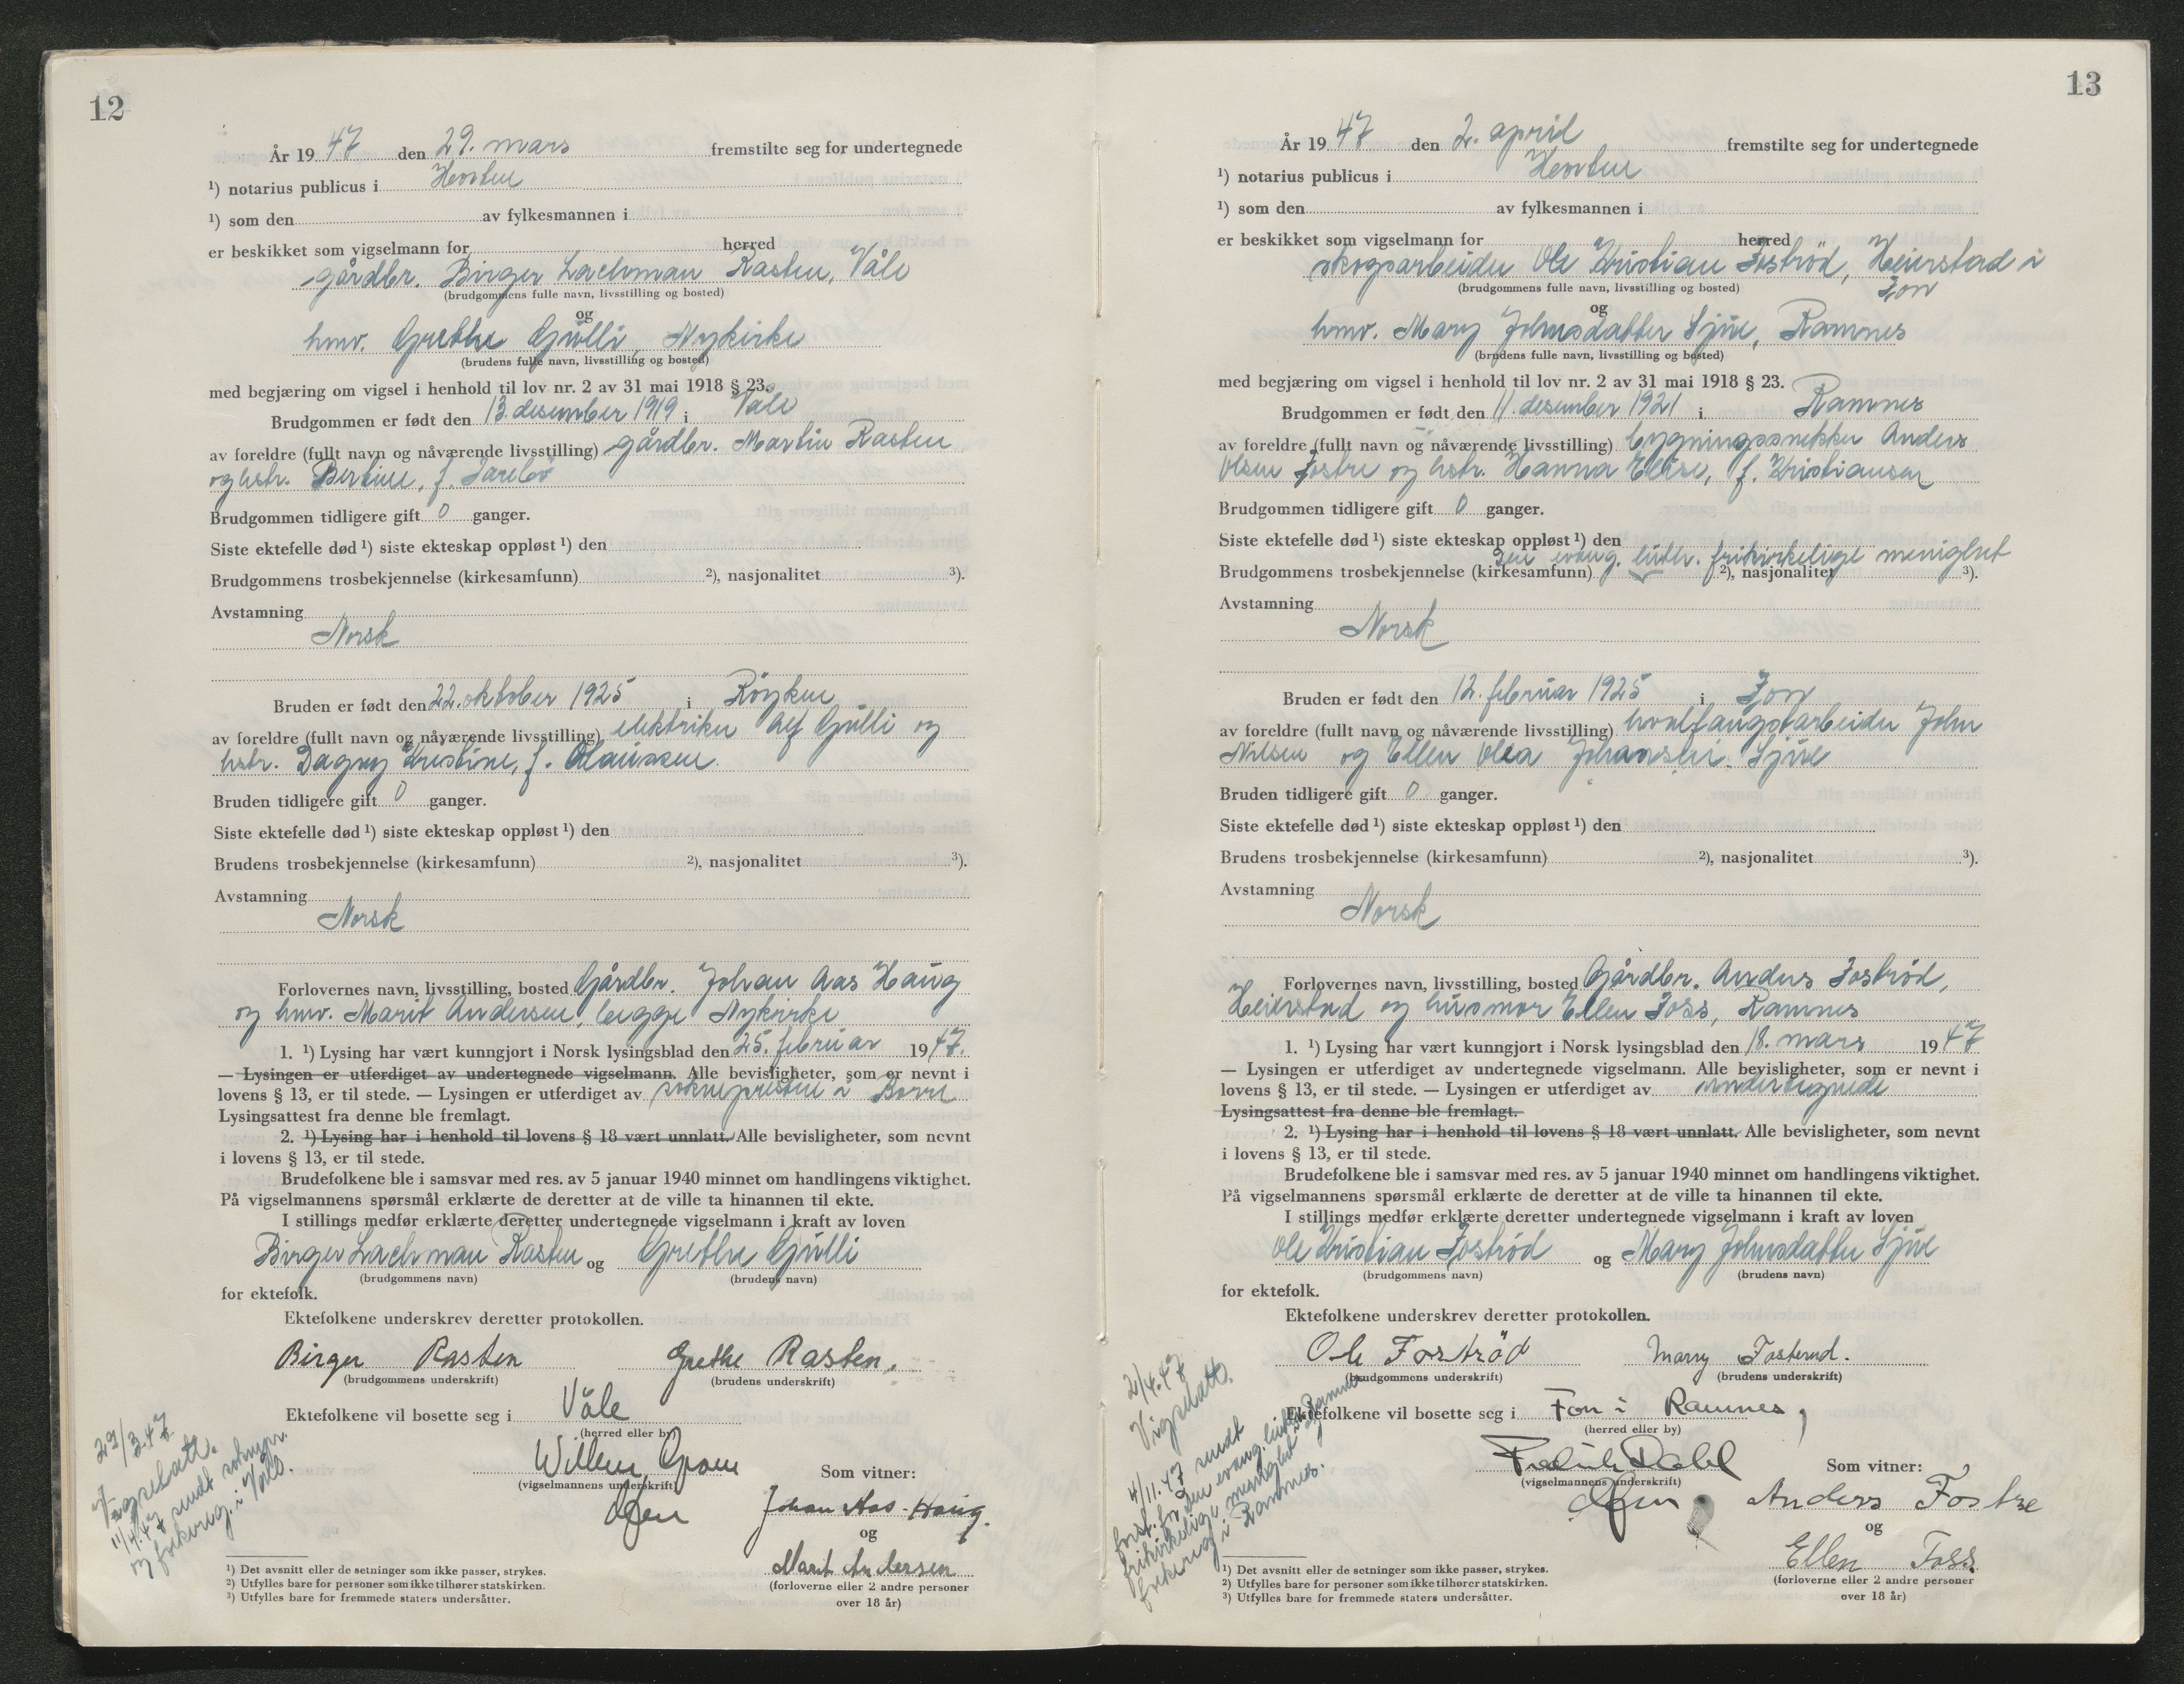 12
År 19 47 den 29. mars fremstilte seg for undertegnede
¹) notarius publicus i Horten
¹) som den av fylkesmannen i
er beskikket som vigselmann for herred
gårdbr. Birger Lachman Rasten, Våle
(brudgommens fulle navn, livsstilling og bosted)
og
hmv. Grethe Gulli, Nykirke
(brudens fulle navn, livsstilling og bosted)
med begjæring om vigsel i henhold til lov nr. 2 av 31 mai 1918 § 23.
Brudgommen er født den 13. desember 1919 i Våle
av foreldre (fullt navn og nåværende livsstilling) gårdbr. Martin Rasten
og hstr. Bertine, f.
Brudgommen tidligere gift 0 ganger.
Siste ektefelle død ¹) siste ekteskap oppløst ¹) den
Brudgommens trosbekjennelse (kirkesamfunn) ²), nasjonalitet ³).
Avstamning
Norsk
Bruden er født den 22. oktober 1925 i Röyken
av foreldre (fullt navn og nåværende livsstilling) elektriker Alf Gulli og
hstr. Dagny Kristine, f. Olaussen.
Bruden tidligere gift 0 ganger.
Siste ektefelle død ¹) siste ekteskap oppløst ¹) den
Brudens trosbekjennelse (kirkesamfunn) ²), nasjonalitet ³).
Avstamning
Norsk
Forlovernes navn, livsstilling, bosted Gårdbr. Johan Aas Haug
og hmv. Marit Andersen, begge Nykirke
1. ¹) Lysing har vært kunngjort i Norsk lysingsblad den 25. februar 19 47.
— Lysingen er utferdiget av undertegnede vigselmann. Alle bevisligheter, som er nevnt i
lovens § 13, er til stede. — Lysingen er utferdiget av soknepresten i Borre
Lysingsattest fra denne ble fremlagt.
2. ¹) Lysing har i henhold til lovens § 18 vært unnlatt. Alle bevisligheter, som nevnt
i lovens § 13, er til stede.
Brudefolkene ble i samsvar med res. av 5 januar 1940 minnet om handlingens viktighet.
På vigselmannens spørsmål erklærte de deretter at de ville ta hinannen til ekte.
I stillings medfør erklærte deretter undertegnede vigselmann i kraft av loven
Birger Lachman Rasten og Grethe Gulli
(brudgommens navn) (brudens navn)
for ektefolk.
Ektefolkene underskrev deretter protokollen.
Birger Rasten Grethe Rasten.
(brudgommens underskrift) (brudens underskrift)
Ektefolkene vil bosette seg i Våle
(herred eller by)
Willem
(vigselmannens underskrift) Som vitner:
Johan Aas-Haug.
og
Marit Andersen
(forloverne eller 2 andre personer
over 18 år)
29/3.47
Vigselatt.
11/4.47 sendt soknepr.
og folkereg. i Våle.
¹) Det avsnitt eller de setninger som ikke passer, strykes.
²) Utfylles bare for personer som ikke tilhører statskirken.
³) Utfylles bare for fremmede staters undersåtter.
13
År 19 47 den 2. april fremstilte seg for undertegnede
¹) notarius publicus i Horten
¹) som den av fylkesmannen i
er beskikket som vigselmann for herred
skogsarbeider Ole Kristian Foströd, Heierstad i
Fon
(brudgommens fulle navn, livsstilling og bosted)
og
hmv. Mary Johnsdatter Sjue, Ramnes
(brudens fulle navn, livsstilling og bosted)
med begjæring om vigsel i henhold til lov nr. 2 av 31 mai 1918 § 23.
Brudgommen er født den 11. desember 1921 i Ramnes
av foreldre (fullt navn og nåværende livsstilling) bygningssnekker Anders
Olsen Fostre og hstr. Hanna Elise, f. Kristiansen
Brudgommen tidligere gift 0 ganger.
Siste ektefelle død ¹) siste ekteskap oppløst ¹) den
Den evang. luth. frikirkelige menighet
Brudgommens trosbekjennelse (kirkesamfunn) ²), nasjonalitet ³).
Avstamning
Norsk
Bruden er født den 12. februar 1925 i Fon
av foreldre (fullt navn og nåværende livsstilling) hvalfangstarbeider John
Nilsen og Ellen Olea Johansen Sjue
Bruden tidligere gift 0 ganger.
Siste ektefelle død ¹) siste ekteskap oppløst ¹) den
Brudens trosbekjennelse (kirkesamfunn) ²), nasjonalitet ³).
Avstamning
Norsk
Forlovernes navn, livsstilling, bosted Gårdbr. Anders Foströd,
Heierstad og husmor Ellen Foss, Ramnes
1. ¹) Lysing har vært kunngjort i Norsk lysingsblad den 18. mars 19 47
— Lysingen er utferdiget av undertegnede vigselmann. Alle bevisligheter, som er nevnt i
lovens § 13, er til stede. — Lysingen er utferdiget av undertegnede
Lysingsattest fra denne ble fremlagt.
2. ¹) Lysing har i henhold til lovens § 18 vært unnlatt. Alle bevisligheter, som nevnt
i lovens § 13, er til stede.
Brudefolkene ble i samsvar med res. av 5 januar 1940 minnet om handlingens viktighet.
På vigselmannens spørsmål erklærte de deretter at de ville ta hinannen til ekte.
I stillings medfør erklærte deretter undertegnede vigselmann i kraft av loven
Ole Kristian Foströd og Mary Johnsdatter Sjue
(brudgommens navn) (brudens navn)
for ektefolk.
Ektefolkene underskrev deretter protokollen.
Ole Foströd Marry Fosterud.
(brudgommens underskrift) (brudens underskrift)
Ektefolkene vil bosette seg i Fon i Ramnes,
(herred eller by)
Fredrik Dahl
(vigselmannens underskrift) Som vitner:
Anders Fostre
og
Ellen Foss.
(forloverne eller 2 andre personer
over 18 år)
2/4.47
Vigselatt.
4/11.47 sendt
forst. for den evang. luth.
frikirkelige menighet i Ramnes og
folkereg. i Ramnes.
¹) Det avsnitt eller de setninger som ikke passer, strykes.
²) Utfylles bare for personer som ikke tilhører statskirken.
³) Utfylles bare for fremmede staters undersåtter.